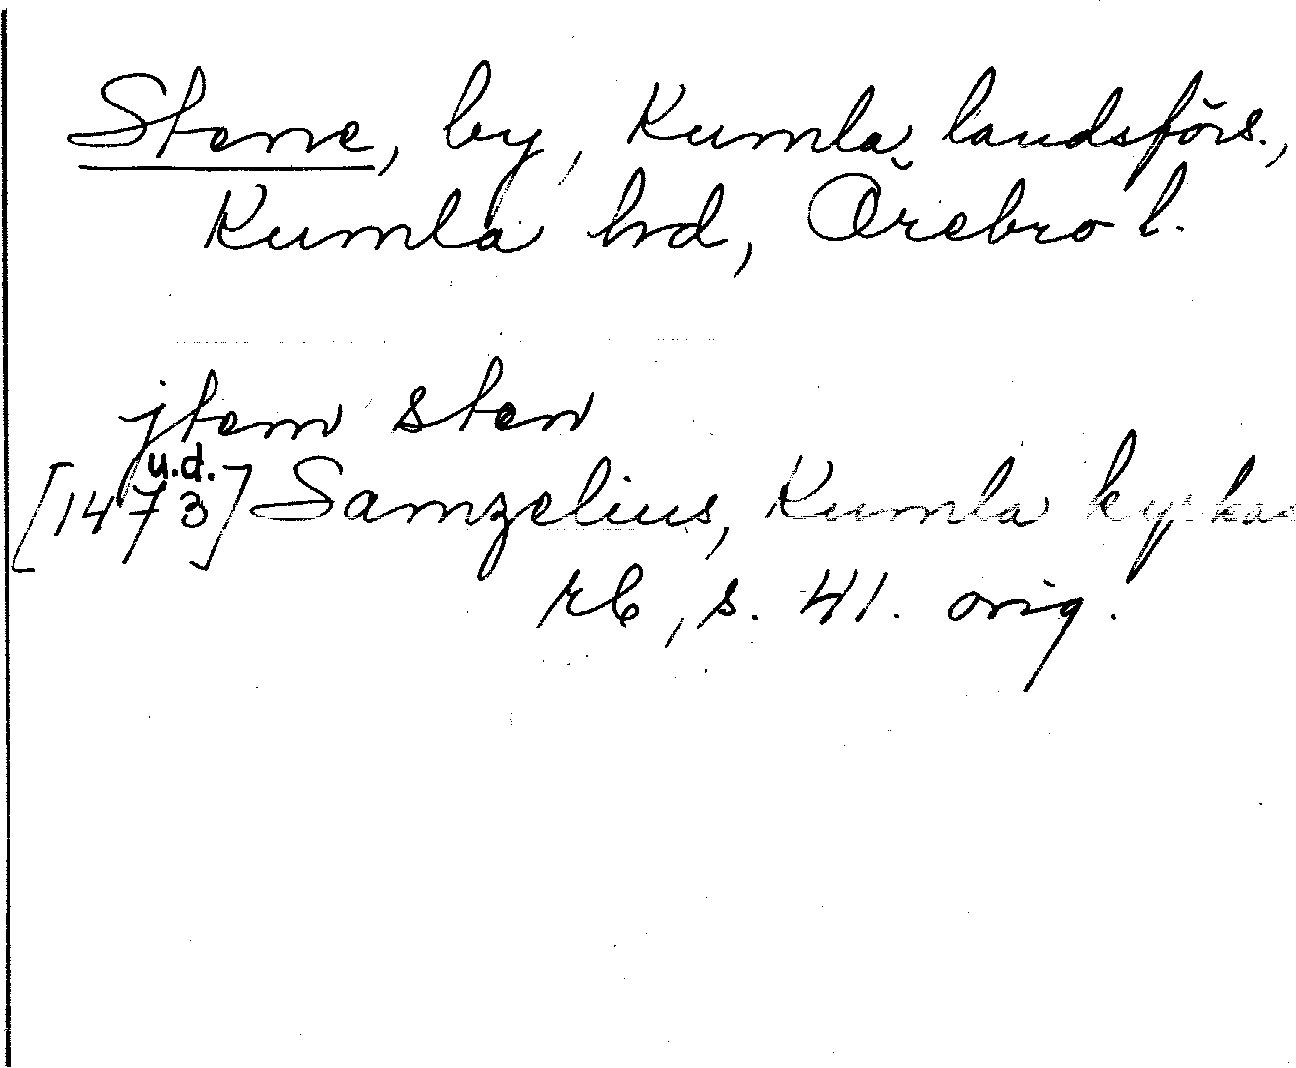 Stene, by, Kumla landsförs.,
Kumla hd, Örebro l.
jtem sten
u.d.
[1473] Samzelius, Kumla kyrkas
rb, s. 41. orig.